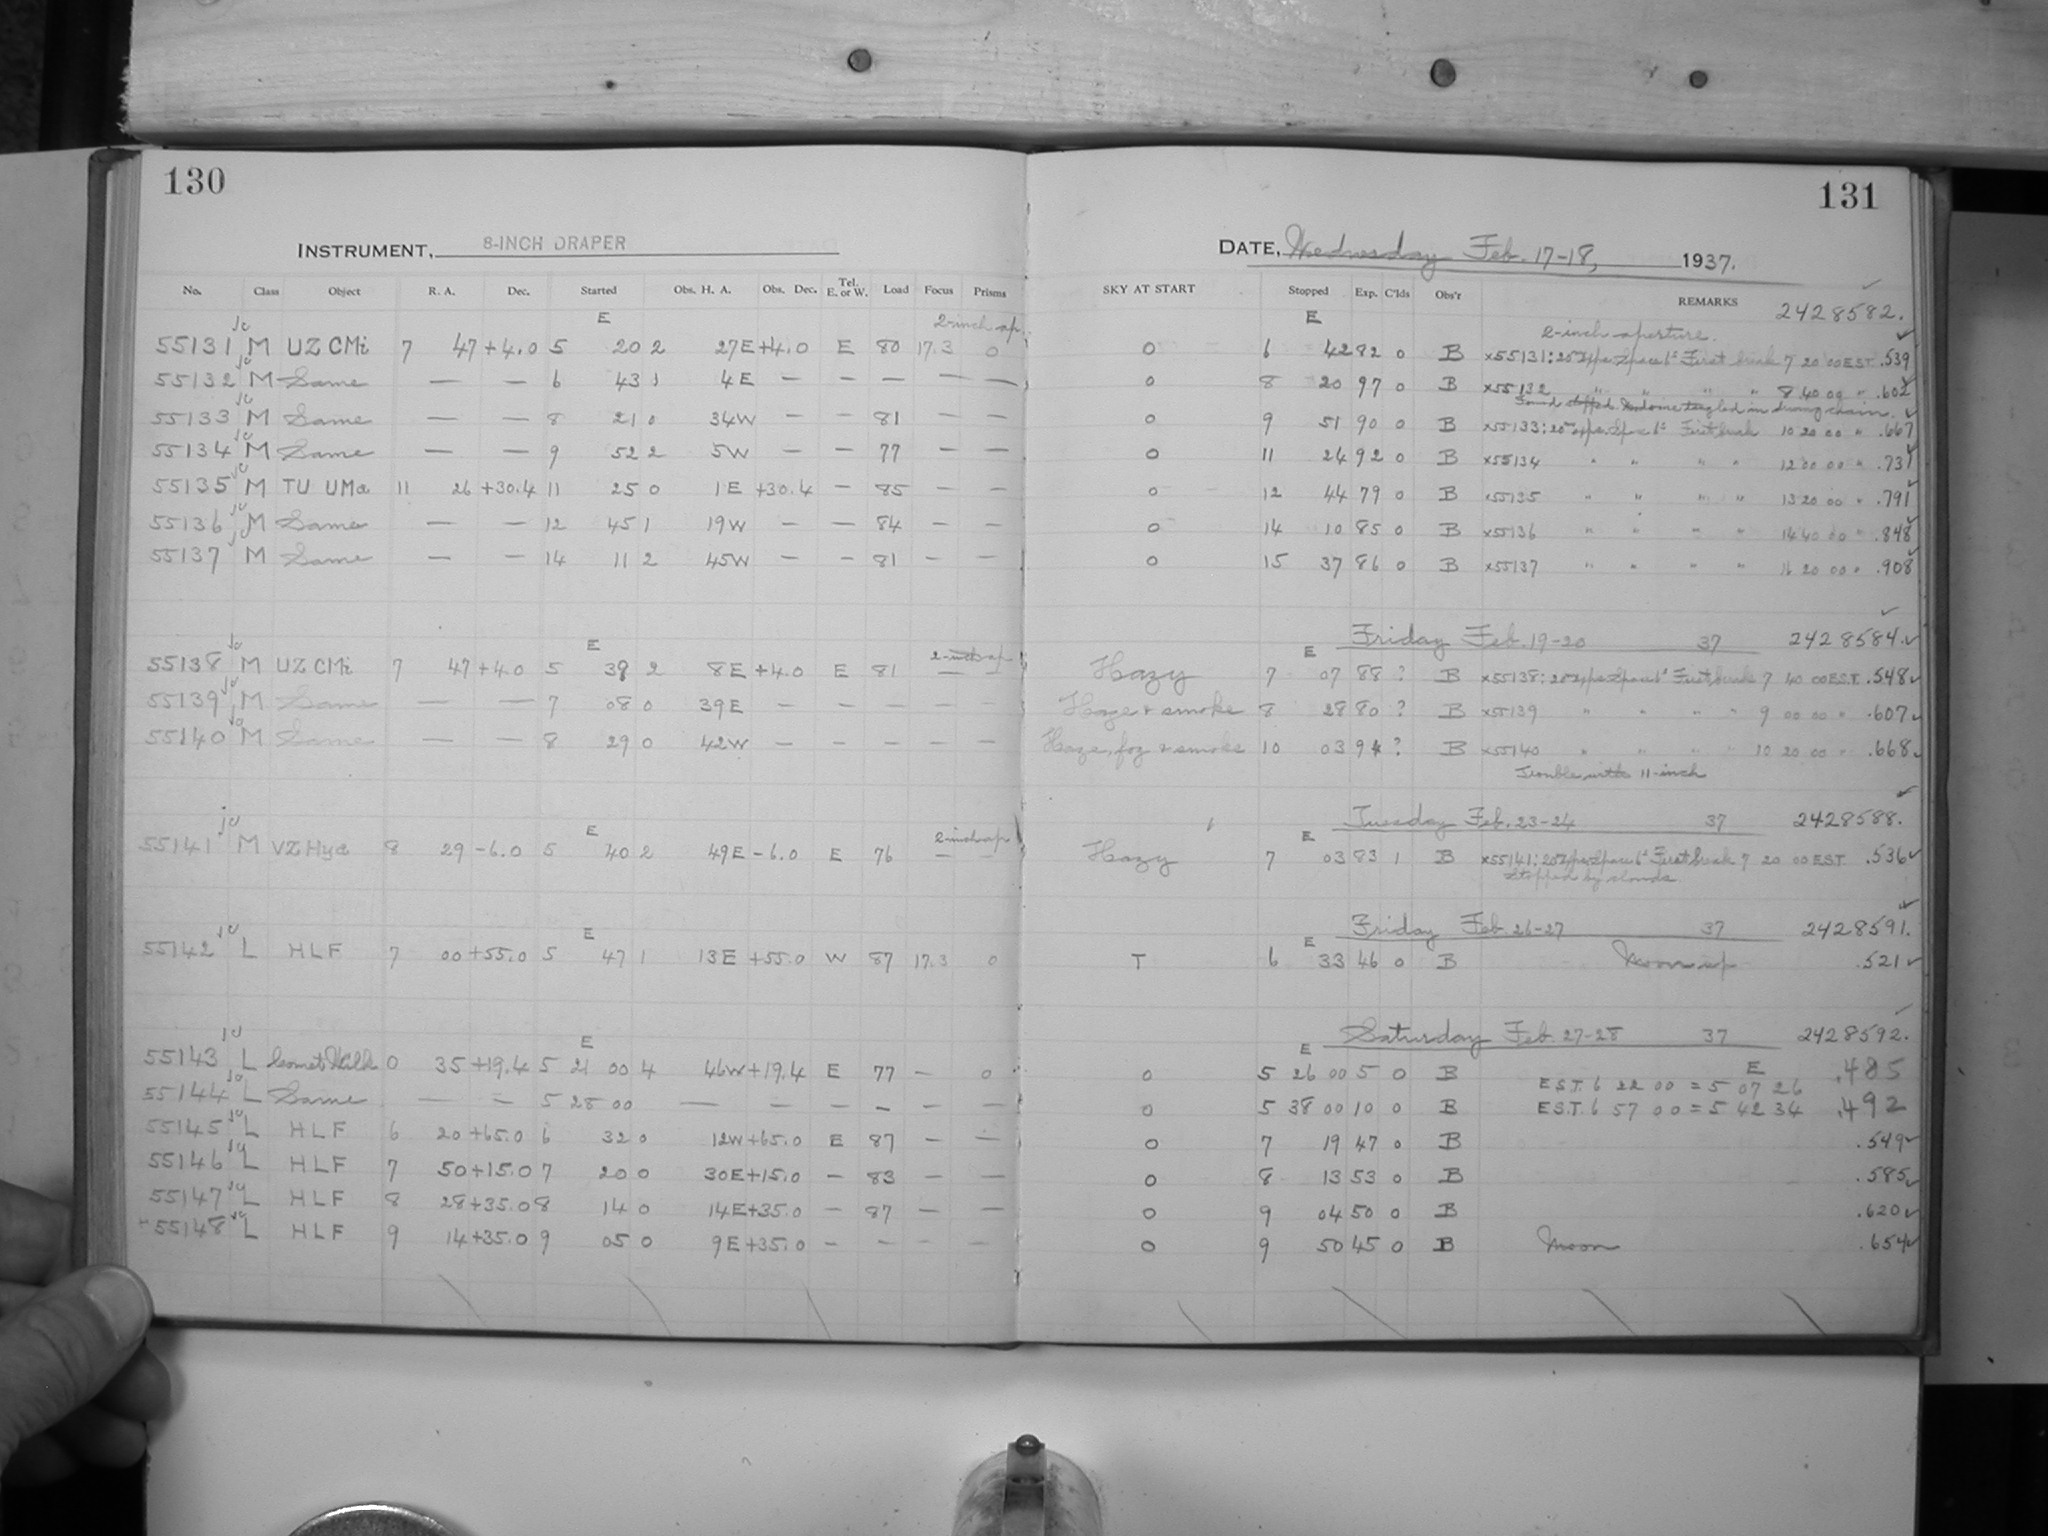 130
INSTRUMENT, 8-INCH DRAPER
No. Class Object R. A. Dec. Started Obs. H. A. Obs. Dec. Tel. E. or W. Load Focus Prisms
E 2-inch ap.
55131 M UZ CMi 7 47 +4.0 5 20 2 27E +4.0 E 80 17.3 0
55132 M Same — — 6 43 1 4E — — — — —
55133 M Same — — 8 21 0 34W — — 81 — —
55134 M Same — — 9 52 2 5W — — 77 — —
55135 M TU UMa 11 26 +30.4 11 25 0 1E +30.4 — 85 — —
55136 M Same — — 12 45 1 19W — — 84 — —
55137 M Same — — 14 11 2 45W — — 81 — —
E 2-inch ap
55138 M UZ CMi 7 47 +4.0 5 39 2 8E +4.0 E 81 — —
55139 M Same — — 7 08 0 39E — — — — —
55140 M Same — — 8 29 0 42W — — — — —
E 2-inch ap
55141 M VZ Hya 8 29 -6.0 5 40 2 49E -6.0 E 76 — —
E
55142 L HLF 7 00 +55.0 5 47 1 13E +55.0 W 87 17.3 0
E
55143 L Comet Wilk 0 35 +19.4 5 21 00 4 46W +19.4 E 77 — 0
55144 L Same — — 5 28 00 — — — — — —
55145 L HLF 6 20 +65.0 6 32 0 12W +65.0 E 87 — —
55146 L HLF 7 50 +15.0 7 20 0 30E +15.0 — 83 — —
55147 L HLF 8 28 +35.0 8 14 0 14E +35.0 — 87 — —
55148 L HLF 9 14 +35.0 9 05 0 9E +35.0 — — — —
131
DATE, Wednesday Feb. 17-18, 1937.
SKY AT START Stopped Exp. C'lds Obs'r REMARKS 2428582.
E 2-inch aperture.
0 6 42 82 0 B x55131: First break 7 20 00 EST .539
0 8 20 97 0 B x55132 " " " " 8 40 00 " .602
Found stopped. dome tangled in driving chain.
0 9 51 90 0 B x55133: First break 10 20 00 " .667
0 11 24 92 0 B x55134 " " " " 12 00 00 " .731
0 12 44 79 0 B x55135 " " " " 13 20 00 " .791
0 14 10 85 0 B x55136 " " " " 14 40 00 " .848
0 15 37 86 0 B x55137 " " " " 16 20 00 " .908
Friday Feb. 19-20 37 2428584.
E
Hazy 7 07 88 ? B x55138: First break 7 40 00 EST. .548
Haze + smoke 8 28 80 ? B x55139 " " " " 9 00 00 " .607
Haze, fog + smoke 10 03 94 ? B x55140 " " " " 10 20 00 " .668
Trouble with 11-inch
Tuesday Feb. 23-24 37 2428588.
E
Hazy 7 03 83 1 B x55141: First break 7 20 00 EST. .536
Stopped by clouds
Friday Feb. 26-27 37 2428591.
E
T 6 33 46 0 B Moon up .521
Saturday Feb. 27-28 37 2428592.
E E
0 5 26 00 5 0 B EST. 6 22 00 = 5 07 26 .485
0 5 38 00 10 0 B EST. 6 57 00 = 5 42 34 .492
0 7 19 47 0 B .549
0 8 13 53 0 B .585
0 9 04 50 0 B .620
0 9 50 45 0 B Moon .654